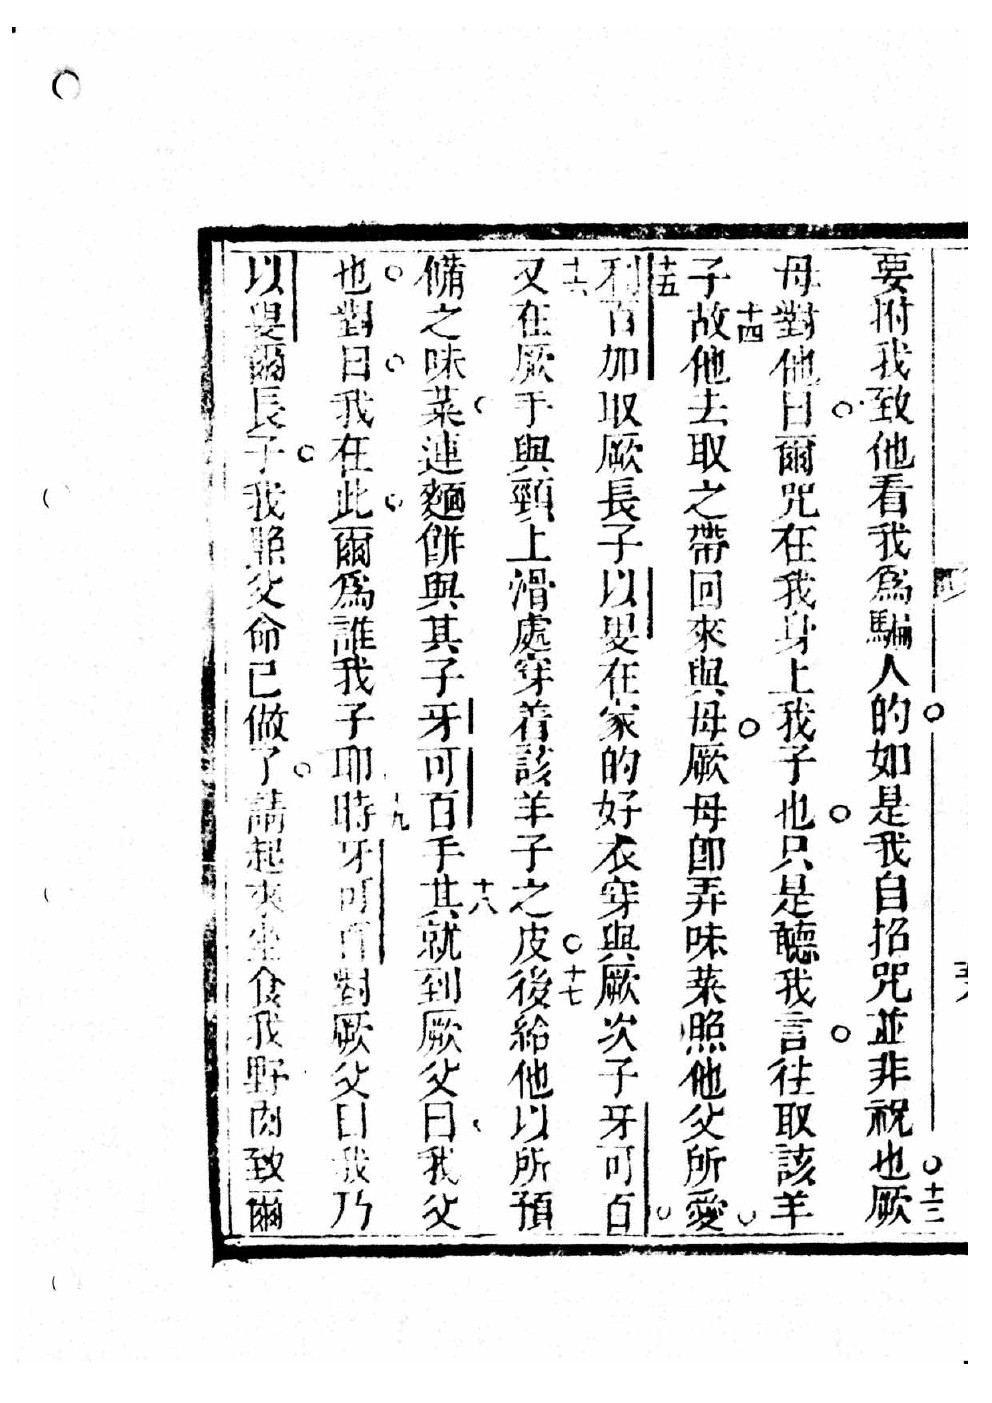 要拊我致他看我為騙人的如是我自招咒並非祝也十三厥
母對他曰爾咒在我身上我子也只是聽我言往取該羊
子十四故他去取之帶回來與母厥母卽弄味菜照他父所愛
十五利百加取厥長子以叟在家的好衣穿與厥次子牙可百
十六又在厥手與頸上滑處穿着該羊子之皮十七後給他以所預
備之味菜連麵餅與其子牙可百手十八其就到厥父曰我父
也對曰我在此爾為誰我子耶十九時牙可百對厥父曰我乃
以叟爾長子我照父命已做了請起來坐食我野肉致爾